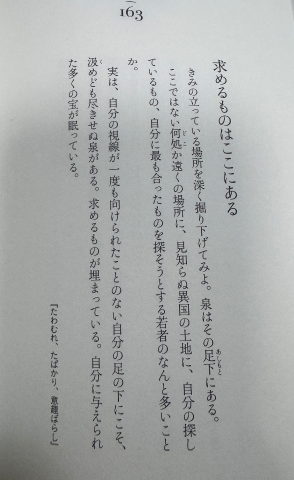 163
求めるものはここにある
きみの立っている場所を深く掘り下げてみよ。泉はその足下にある。
ここではない何処か遠くの場所に、見知らぬ異国の土地に、自分の探し
ているもの、自分に最も合ったものを探そうとする若者のなんと多いこと
か。
実は、自分の視線が一度も向けられたことのない自分の足の下にこそ、
汲めども尽きせぬ泉がある。求めるものが埋まっている。自分に与えられ
た多くの宝が眠っている。
『たわむれ、たばかり、意趣ばらし』